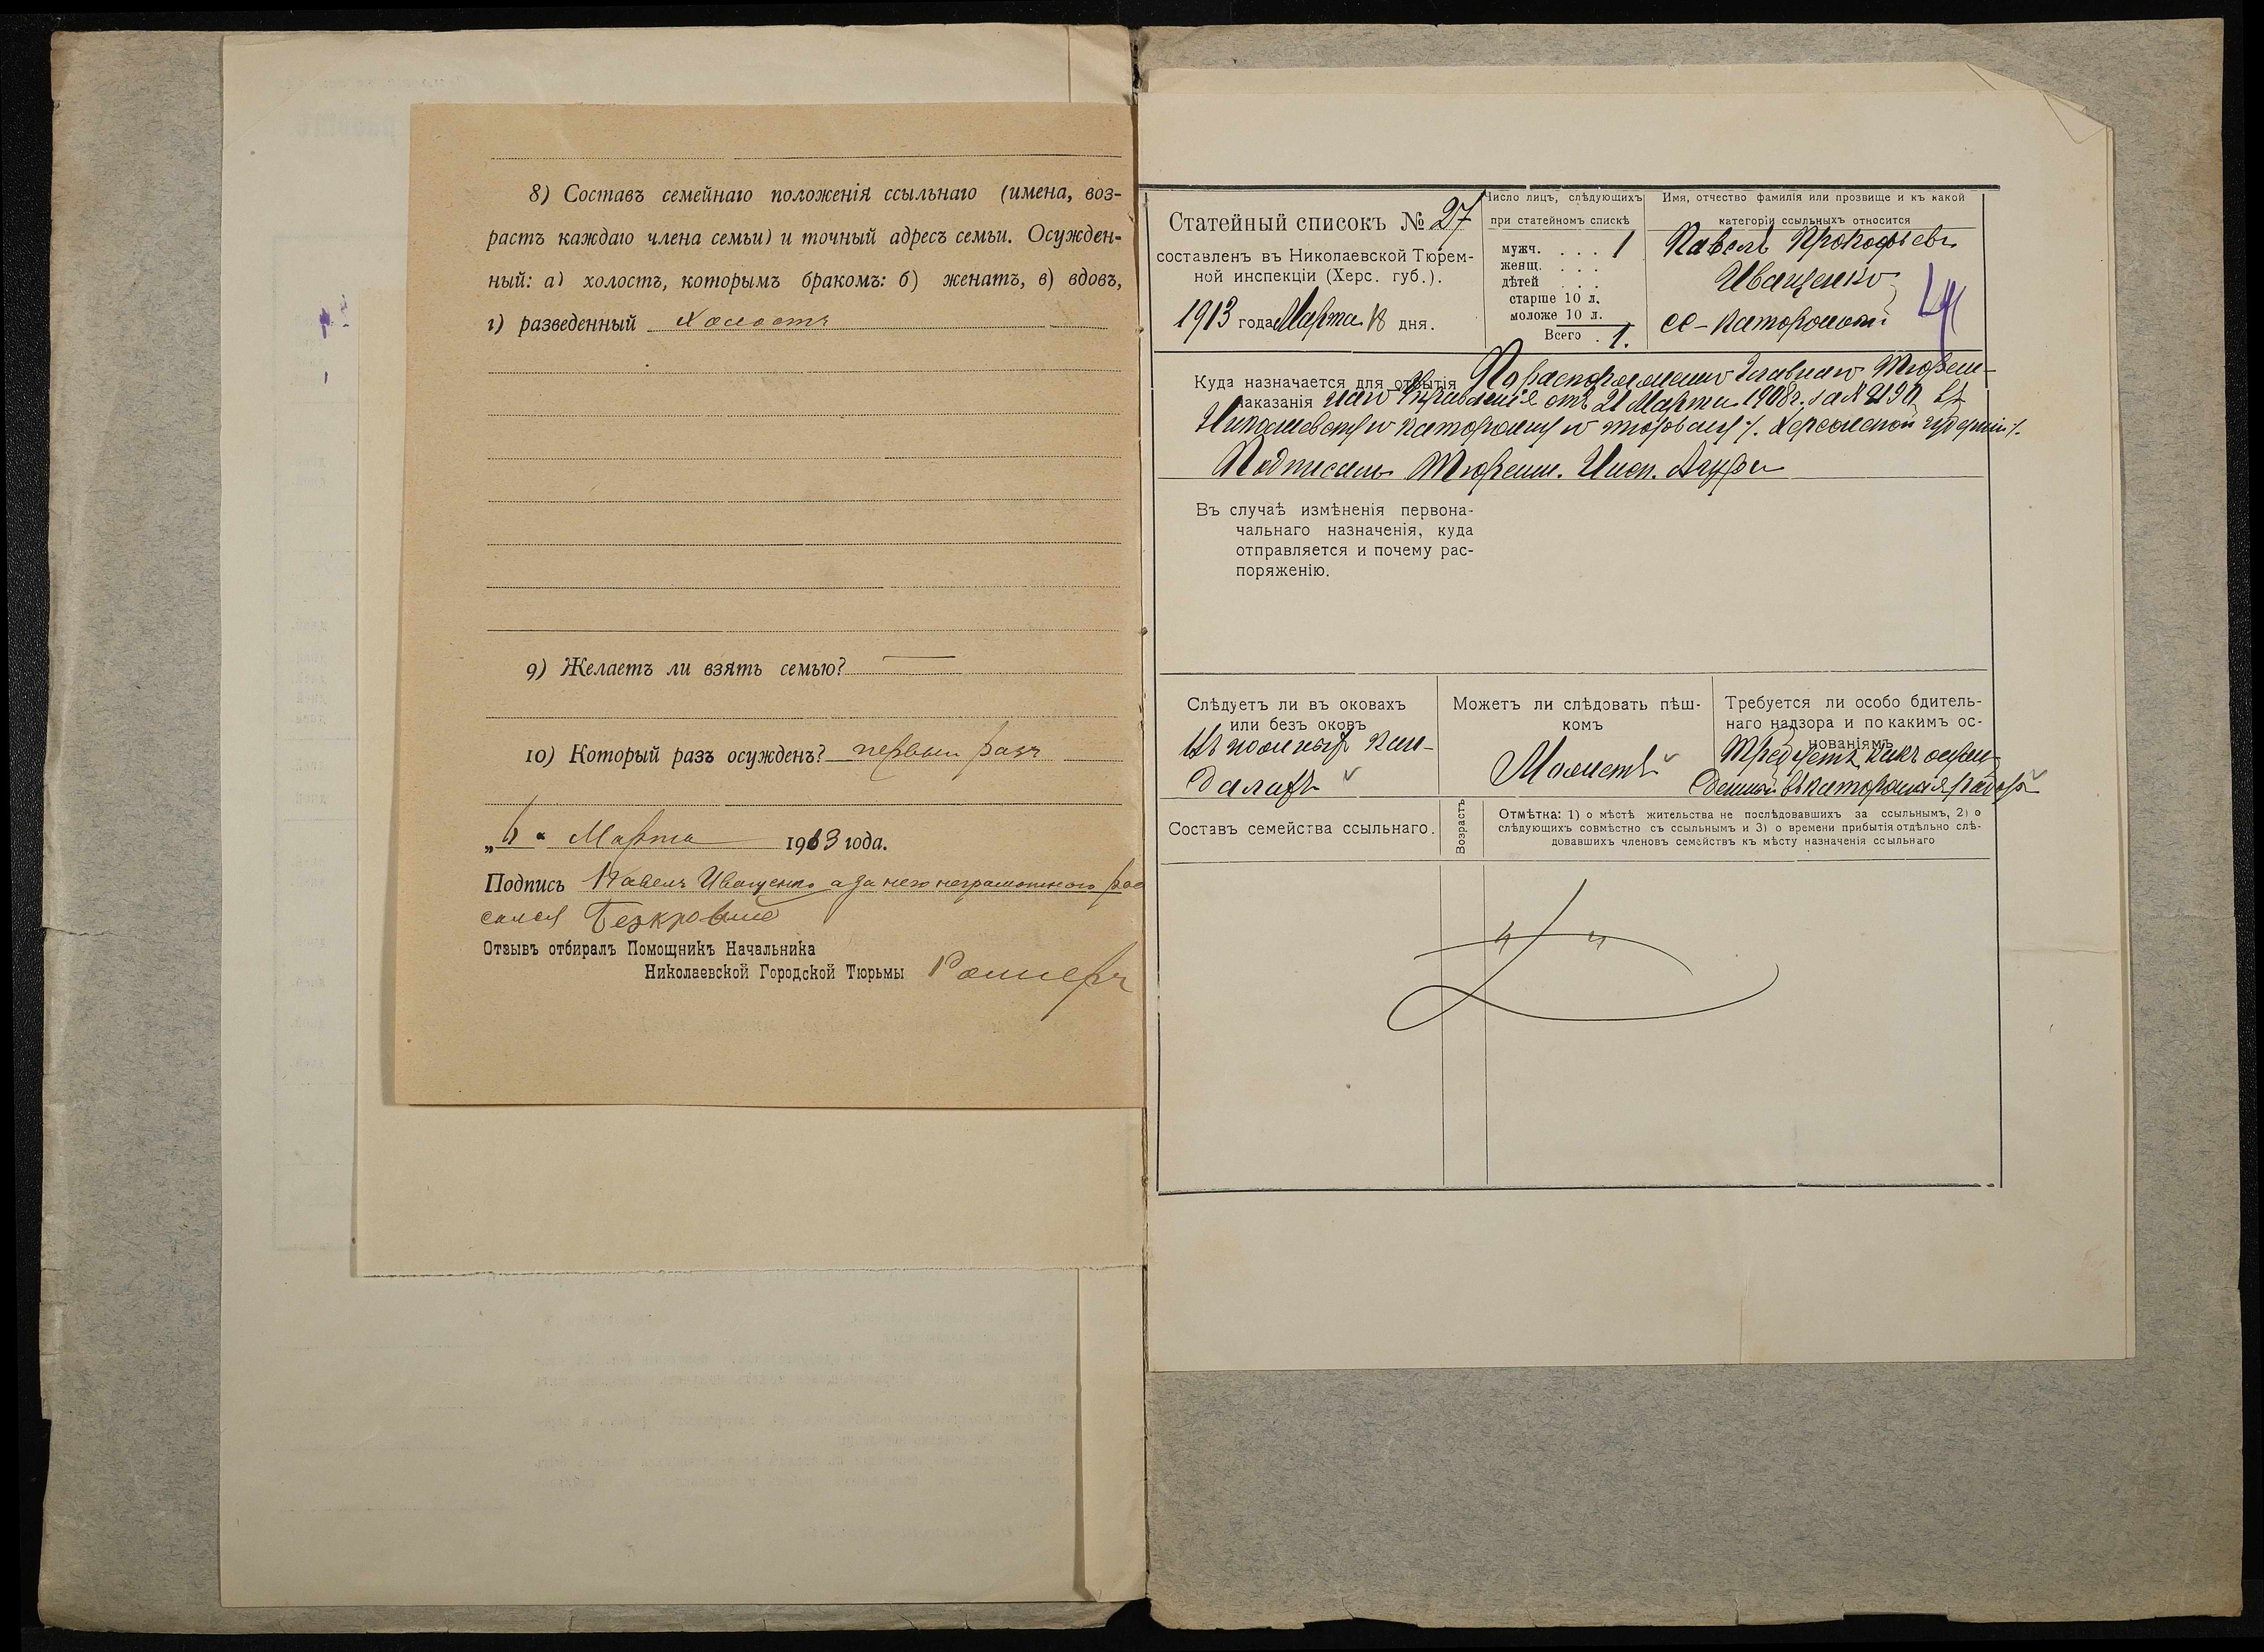 8) Составъ семейнаго положенія ссыльнаго (имена, воз-
растъ каждаго члена семьи) и точный адресъ семьи. Осужден-
ный: а) холостъ, которымъ бракомъ: б) женатъ, в) вдовъ,
г) разведенный Холостъ
9) Желаетъ ли взять семью? —
10) Который разъ осужденъ? первый разъ
„6“ Марта 1913 года.
Подпись Павелъ Иващенко а за него неграмотного рос
сался Безкровный
Отзывъ отбиралъ Помощникъ Начальника
Николаевской Городской Тюрьмы
Статейный списокъ № 27
составленъ въ Николаевской Тюрем-
ной инспекціи (Херс. губ.).
1913 года Марта 18 дня.
Число лицъ, слѣдующихъ
при статейномъ спискѣ
мужч. . . . 1
женщ. . . .
дѣтей . . .
старше 10 л.
моложе 10 л.
Всего . 1.
Имя, отчество фамилія или прозвище и къ какой
категоріи ссыльныхъ относится
Павелъ Прокофьевъ
Иващенко
сс-каторжный
Куда назначается для отбытія По распоряженію Главнаго Тюрем-
наказанія наго Управленія отъ 21 Марта 1908 г. за № 2190 въ
Николаевскую каторжную тюрьму, Херсонской губерніи.
Подписалъ Тюремн. Инсп.
Въ случаѣ измѣненія первона-
чальнаго назначенія, куда
отправляется и почему рас-
поряженію.
Слѣдуетъ ли въ оковахъ
или безъ оковъ
Въ ножныхъ кан-
далахъ
Можетъ ли слѣдовать пѣш-
комъ
Можетъ
Требуется ли особо бдитель-
наго надзора и по какимъ ос-
нованіямъ
Требуетъ, какъ осуж-
денный въ каторжныя работы
Составъ семейства ссыльнаго.
Возрастъ
Отмѣтка: 1) о мѣстѣ жительства не послѣдовавшихъ за ссыльнымъ, 2) о
слѣдующихъ совмѣстно съ ссыльнымъ и 3) о времени прибытія отдѣльно слѣ-
довавшихъ членовъ семействъ къ мѣсту назначенія ссыльнаго